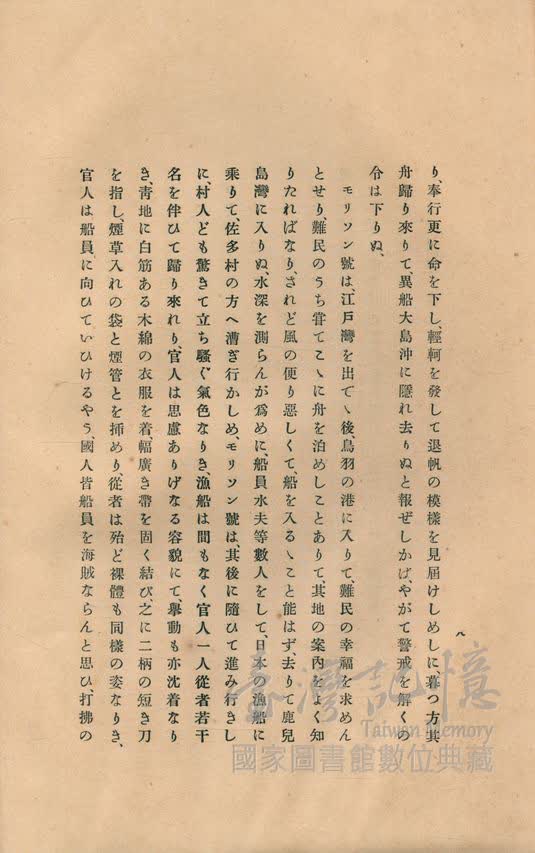 八
り、奉行更に命を下し、輕舸を發して退帆の模樣を見屆けしめしに、暮つ方其
舟歸り來りて、異船大島沖に隱れ去りぬと報ぜしかば、やがて警戒を解くの
令は下りぬ、
モリソン號は、江戸灣を出でゝ後、鳥羽の港に入りて、難民の幸福を求めん
とせり、難民のうち甞てこゝに舟を泊めしことありて、其地の案内をよく知
りたればなり、されど風の便り惡しくて、船を入るゝこと能はず、去りて鹿兒
島灣に入りぬ、水深を測らんが爲めに、船員水夫等數人をして、日本の漁船に
乘りて、佐多村の方へ漕ぎ行かしめ、モリソン號は、其後に隨ひて進み行きし
に、村人ども驚きて立ち騷ぐ氣色なりき、漁船は間もなく官人一人從者若干
名を伴ひて歸り來れり、官人は思慮ありげなる容貌にて、擧動も亦沈着なり
き、靑地に白筋ある木綿の衣服を着、幅廣き帶を固く結び、之に二柄の短き刀
を指し、煙草入れの袋と煙管とを揷めり、從者は殆ど裸體も同樣の姿なりき、
官人は船員に向ひていひけるやう、國人皆船員を海賊ならんと思ひ、打拂の
臺灣記憶
Taiwan Memory
國家圖書館數位典藏